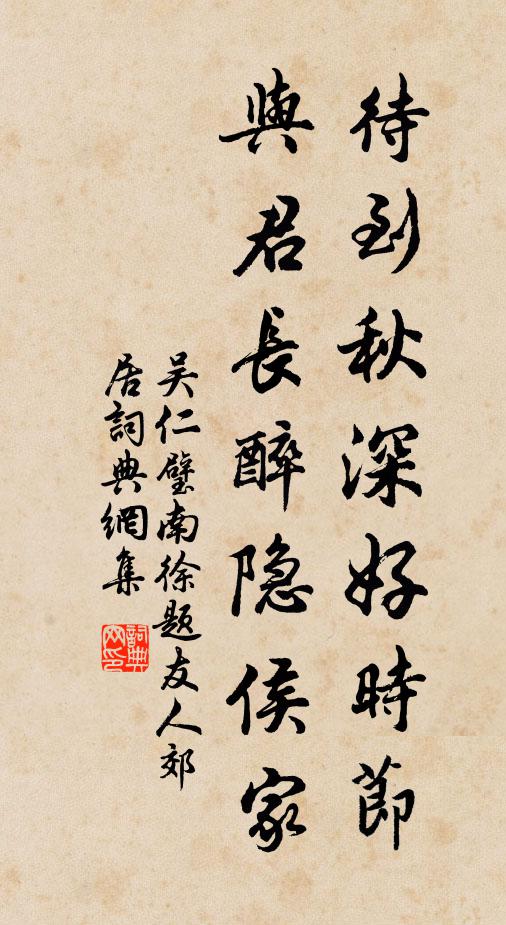 待到秋深好時節
與君長醉隐侯家
吴仁璧南徐题友人郊
居詞典網集
詞典
网印